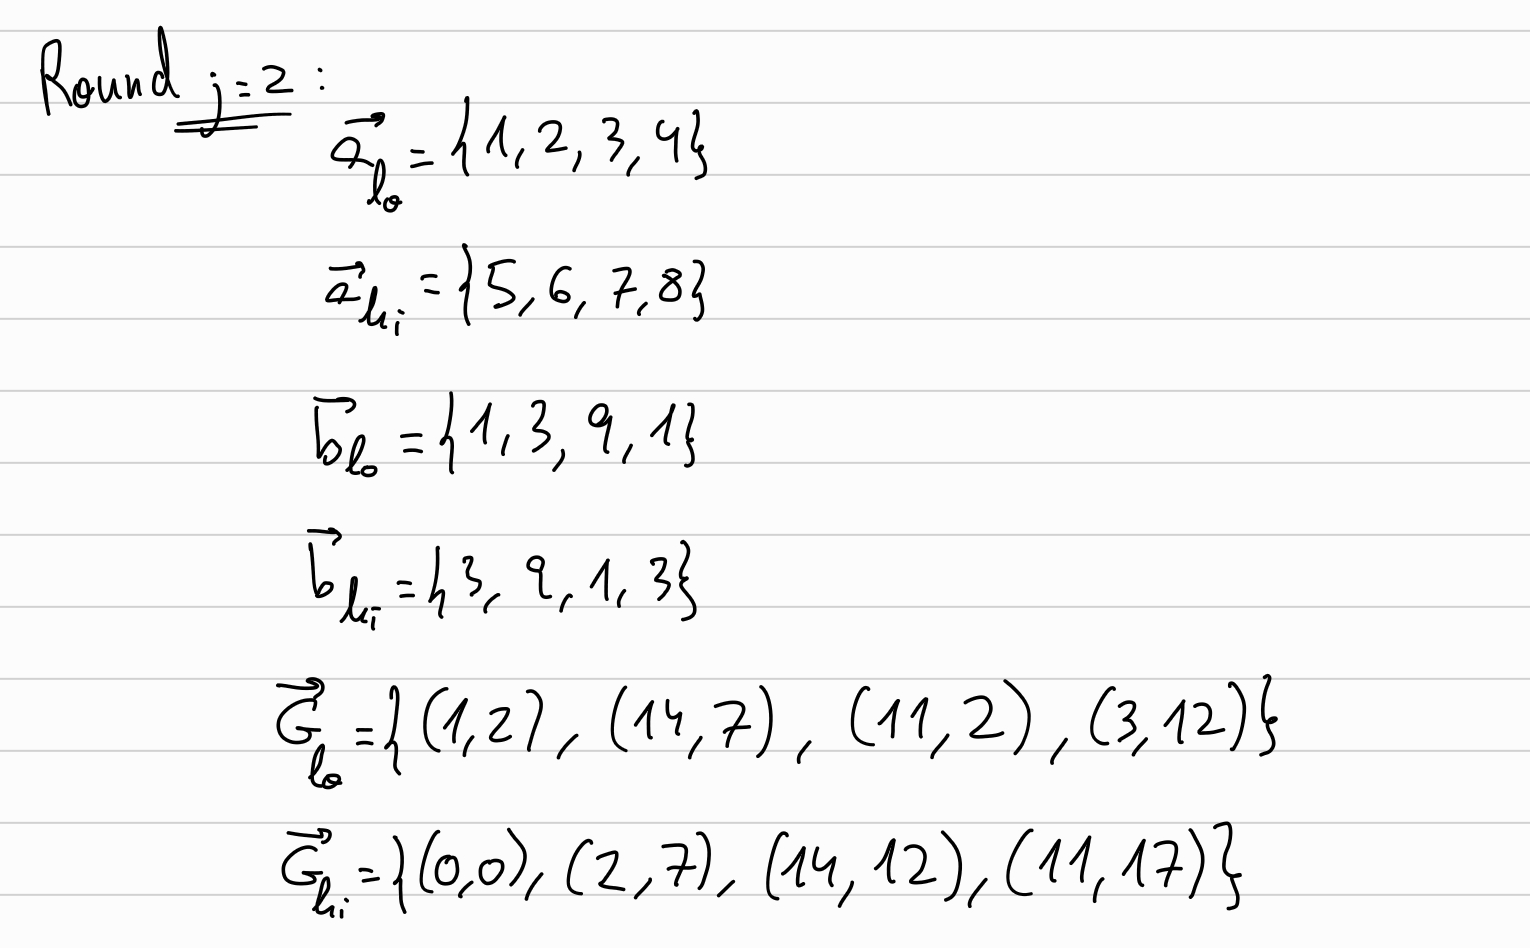 Round j=2 :
a⃗_lo = {1, 2, 3, 4}
a⃗_hi = {5, 6, 7, 8}
b⃗_lo = {1, 3, 9, 1}
b⃗_hi = {3, 9, 1, 3}
G⃗_lo = {(1,2), (14,7), (11,2), (3,12)}
G⃗_hi = {(0,0), (2,7), (14,12), (11,17)}